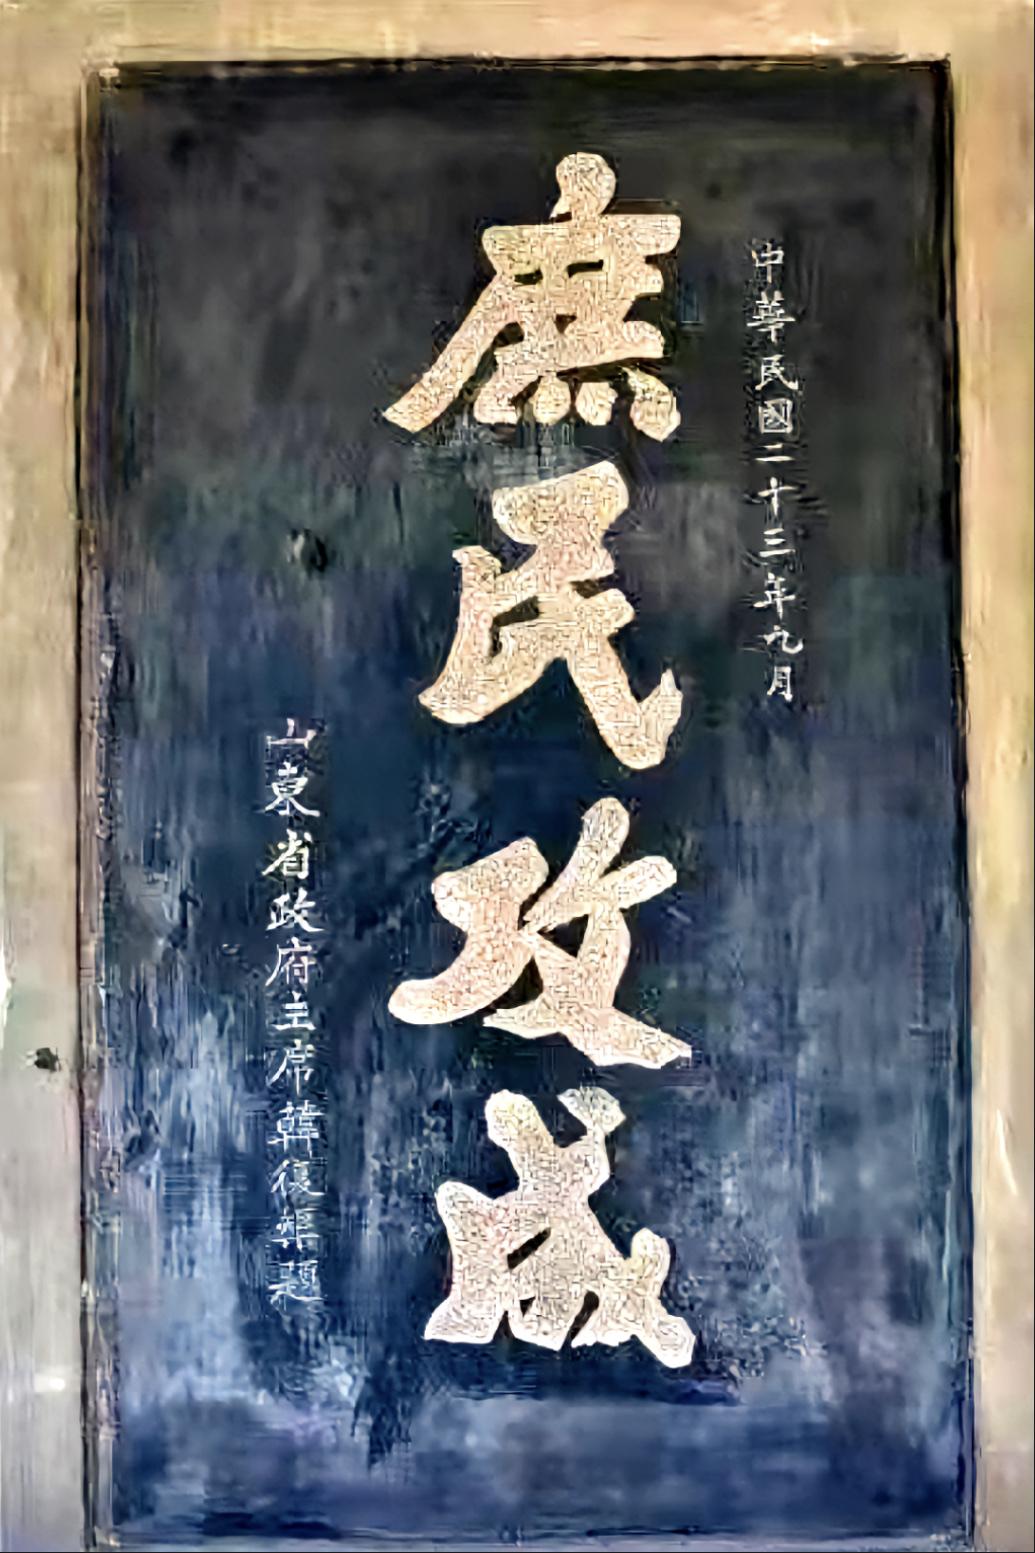 中華民國二十三年九月
庶民攻成
山東省政府主席韓復榘題